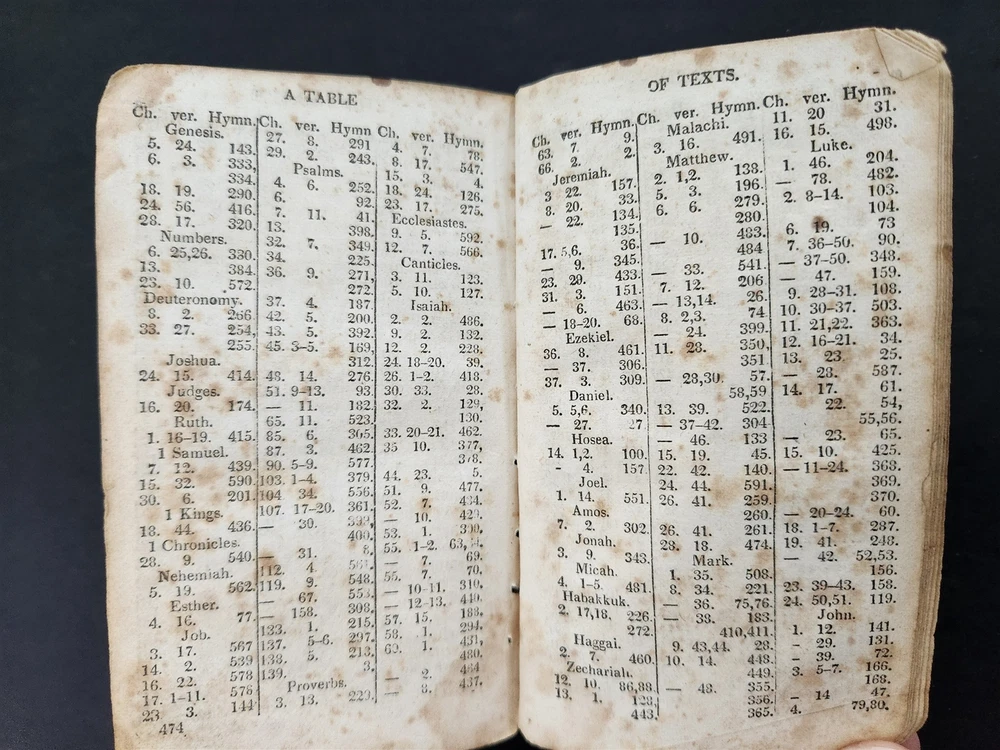 A TABLE
Ch. ver. Hymn.
Genesis.
5. 24. 143.
6. 3. 333,
334.
18. 19. 290.
24. 56. 416.
28. 17. 320.
Numbers.
6. 25,26. 330.
13. 384.
23. 10. 572.
Deuteronomy.
8. 2. 266
33. 27. 254,
255.
Joshua.
24. 15. 414.
Judges.
16. 20. 174.
Ruth.
1. 16-19. 415.
1 Samuel.
7. 12. 439.
15. 32. 590.
30. 6. 201.
1 Kings.
18. 44. 436.
1 Chronicles.
28. 9. 540.
Nehemiah.
5. 19. 562.
Esther.
4. 16. 77.
Job.
3. 17. 567
14. 2. 539
16. 22. 578
17. 1-11. 576
23 3. 144
474
Ch. ver. Hymn
27. 8. 291
29. 2. 243.
Psalms.
4. 6. 252.
6. 92.
7. 11. 41.
13. 398.
32. 7. 349.
34. 225.
36. 9. 271,
272.
37. 4. 187
42. 5. 200.
43. 5. 392.
45. 3-5. 169,
312.
48. 14. 276.
51. 9-13. 93.
— 11. 182.
65. 11. 523.
85. 6. 365.
87. 3. 462.
90. 5-9. 577.
103. 1-4. 379.
104 34. 556.
107. 17-20. 361.
— 30.
400.
— 31. 8.
112. 4
119. 9. 548.
— 67. 553.
— 158. 308.
133. 1. 215.
137. 5-6. 297.
138. 5. 213.
139. 3.
Proverbs.
3. 13. 229.
Ch. ver. Hymn.
4. 7. 78.
8. 17. 547.
15. 3. 4.
18. 24. 126.
23. 17. 275.
Ecclesiastes.
9. 5. 592.
12. 7. 566.
Canticles.
3. 11. 123.
5. 10. 127.
Isaiah.
2. 2. 486.
9. 2. 132.
12. 2. 228.
24. 18-20. 39.
26. 1-2. 418.
30. 33. 28.
32. 2. 129,
130.
33. 20-21. 462.
35 10. 377,
378.
44. 23. 5.
51. 9. 477.
52. 7.
— 10.
53. 1.
55. 1-2.
— 7. 69.
55. 7. 70.
— 10-11. 310.
— 12-13. 440.
57. 15. 188.
58. 1. 294.
60. 1. 431,
480.
— 2. 484
— 8. 437.
OF TEXTS.
Ch. ver. Hymn.
63. 7. 9.
66. 2. 2.
Jeremiah.
3 22. 157.
8. 20. 33.
— 22. 134.
135.
17. 5,6. 36.
— 9. 345.
23. 29. 433.
31. 3. 151.
— 6. 463.
— 18-20. 68.
Ezekiel.
36. 8. 461.
— 37. 306.
37. 3. 309.
Daniel.
5. 5,6. 340.
— 27. 27
Hosea.
14. 1,2. 100.
- 4. 157
Joel.
1. 14. 551.
Amos.
7. 2. 302.
Jonah.
3. 9. 343.
Micah.
4. 1-5. 481.
Habakkuk.
2. 17,18. 226.
272.
Haggai.
2. 7. 460.
Zechariah.
12. 10. 86,88.
13. 1. 128,
443.
Ch. ver. Hymn.
Malachi.
3. 16. 491.
Matthew.
2. 1,2. 138.
5. 3. 196.
6. 6. 279.
280.
— 10. 483.
484
— 33. 541.
7. 12. 206
— 13,14. 26.
8. 2,3. 74.
— 24. 399.
11. 28. 350,
351
— 28,30. 57.
58,59
13. 39. 522.
— 37-42. 304
— 46. 133
15. 19. 45.
22. 42. 140.
24. 44. 591.
26. 41. 259.
260.
26. 41. 261.
28. 18. 474.
Mark.
1. 35. 508.
8. 34. 221.
— 36. 75,76.
— 38. 183.
410,411.
9. 43,44. 28.
10. 14. 448.
449.
— 48. 355.
356.
365.
Ch. ver. Hymn.
11. 20 31.
16. 15. 498.
Luke.
1. 46. 204.
— 78. 482.
2. 8-14. 103.
104.
6. 19. 73
7. 36-50. 90.
— 37-50. 348.
— 47. 159.
9. 28-31. 108.
10. 30-37. 503.
11. 21,22. 363.
12. 16-21. 34.
13. 23. 25.
— 28. 587.
14. 17. 61.
22. 54,
55,56.
— 23. 65.
15. 10. 425.
— 11-24. 368.
369.
370.
— 20-24. 60.
18. 1-7. 287.
19. 41. 248.
— 42. 52,53.
156.
23. 39-43. 158.
24. 50,51. 119.
John.
1. 12. 141.
- 29. 131.
- 39. 72.
3. 5-7. 166.
168.
- 14 47.
4. 79,80.